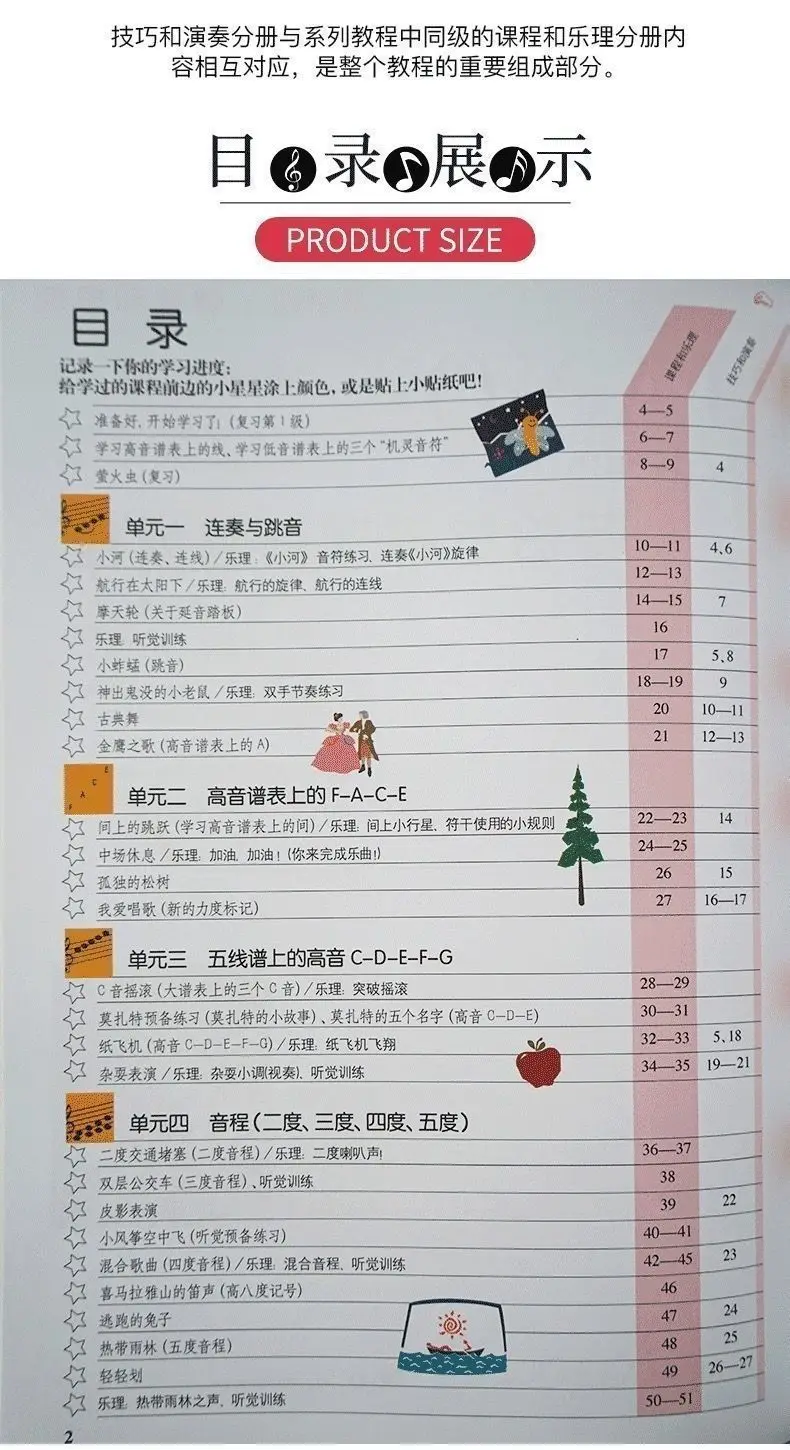 技巧和演奏分册与系列教程中同级的课程和乐理分册内
容相互对应，是整个教程的重要组成部分。
目录展示
PRODUCT SIZE
目 录
课程和乐理
技巧和演奏
记录一下你的学习进度：
给学过的课程前边的小星星涂上颜色，或是贴上小贴纸吧！
准备好，开始学习了！（复习第1级） 4—5
学习高音谱表上的线、学习低音谱表上的三个“机灵音符” 6—7
萤火虫（复习） 8—9 4
单元一 连奏与跳音
小河（连奏、连线）/乐理：《小河》音符练习、连奏《小河》旋律 10—11 4、6
航行在太阳下/乐理：航行的旋律、航行的连线 12—13
摩天轮（关于延音踏板） 14—15 7
乐理、听觉训练 16
小蚱蜢（跳音） 17 5、8
神出鬼没的小老鼠/乐理：双手节奏练习 18—19 9
古典舞 20 10—11
金鹰之歌（高音谱表上的A） 21 12—13
F A C E
单元二 高音谱表上的F–A–C–E
间上的跳跃（学习高音谱表上的间）/乐理：间上小行星、符干使用的小规则 22—23 14
中场休息/乐理：加油，加油！（你来完成乐曲！） 24—25
孤独的松树 26 15
我爱唱歌（新的力度标记） 27 16—17
单元三 五线谱上的高音C–D–E–F–G
C音摇滚（大谱表上的三个C音）/乐理：突破摇滚 28—29
莫扎特预备练习（莫扎特的小故事）、莫扎特的五个名字（高音C–D–E） 30—31
纸飞机（高音C–D–E–F–G）/乐理：纸飞机飞翔 32—33 5、18
杂耍表演/乐理：杂耍小调（视奏）、听觉训练 34—35 19—21
单元四 音程（二度、三度、四度、五度）
二度交通堵塞（二度音程）/乐理：二度喇叭声！ 36—37
双层公交车（三度音程）、听觉训练 38
皮影表演 39 22
小风筝空中飞（听觉预备练习） 40—41
混合歌曲（四度音程）/乐理：混合音程、听觉训练 42—45 23
喜马拉雅山的笛声（高八度记号） 46
逃跑的兔子 47 24
热带雨林（五度音程） 48 25
轻轻划 49 26—27
乐理：热带雨林之声、听觉训练 50—51
2